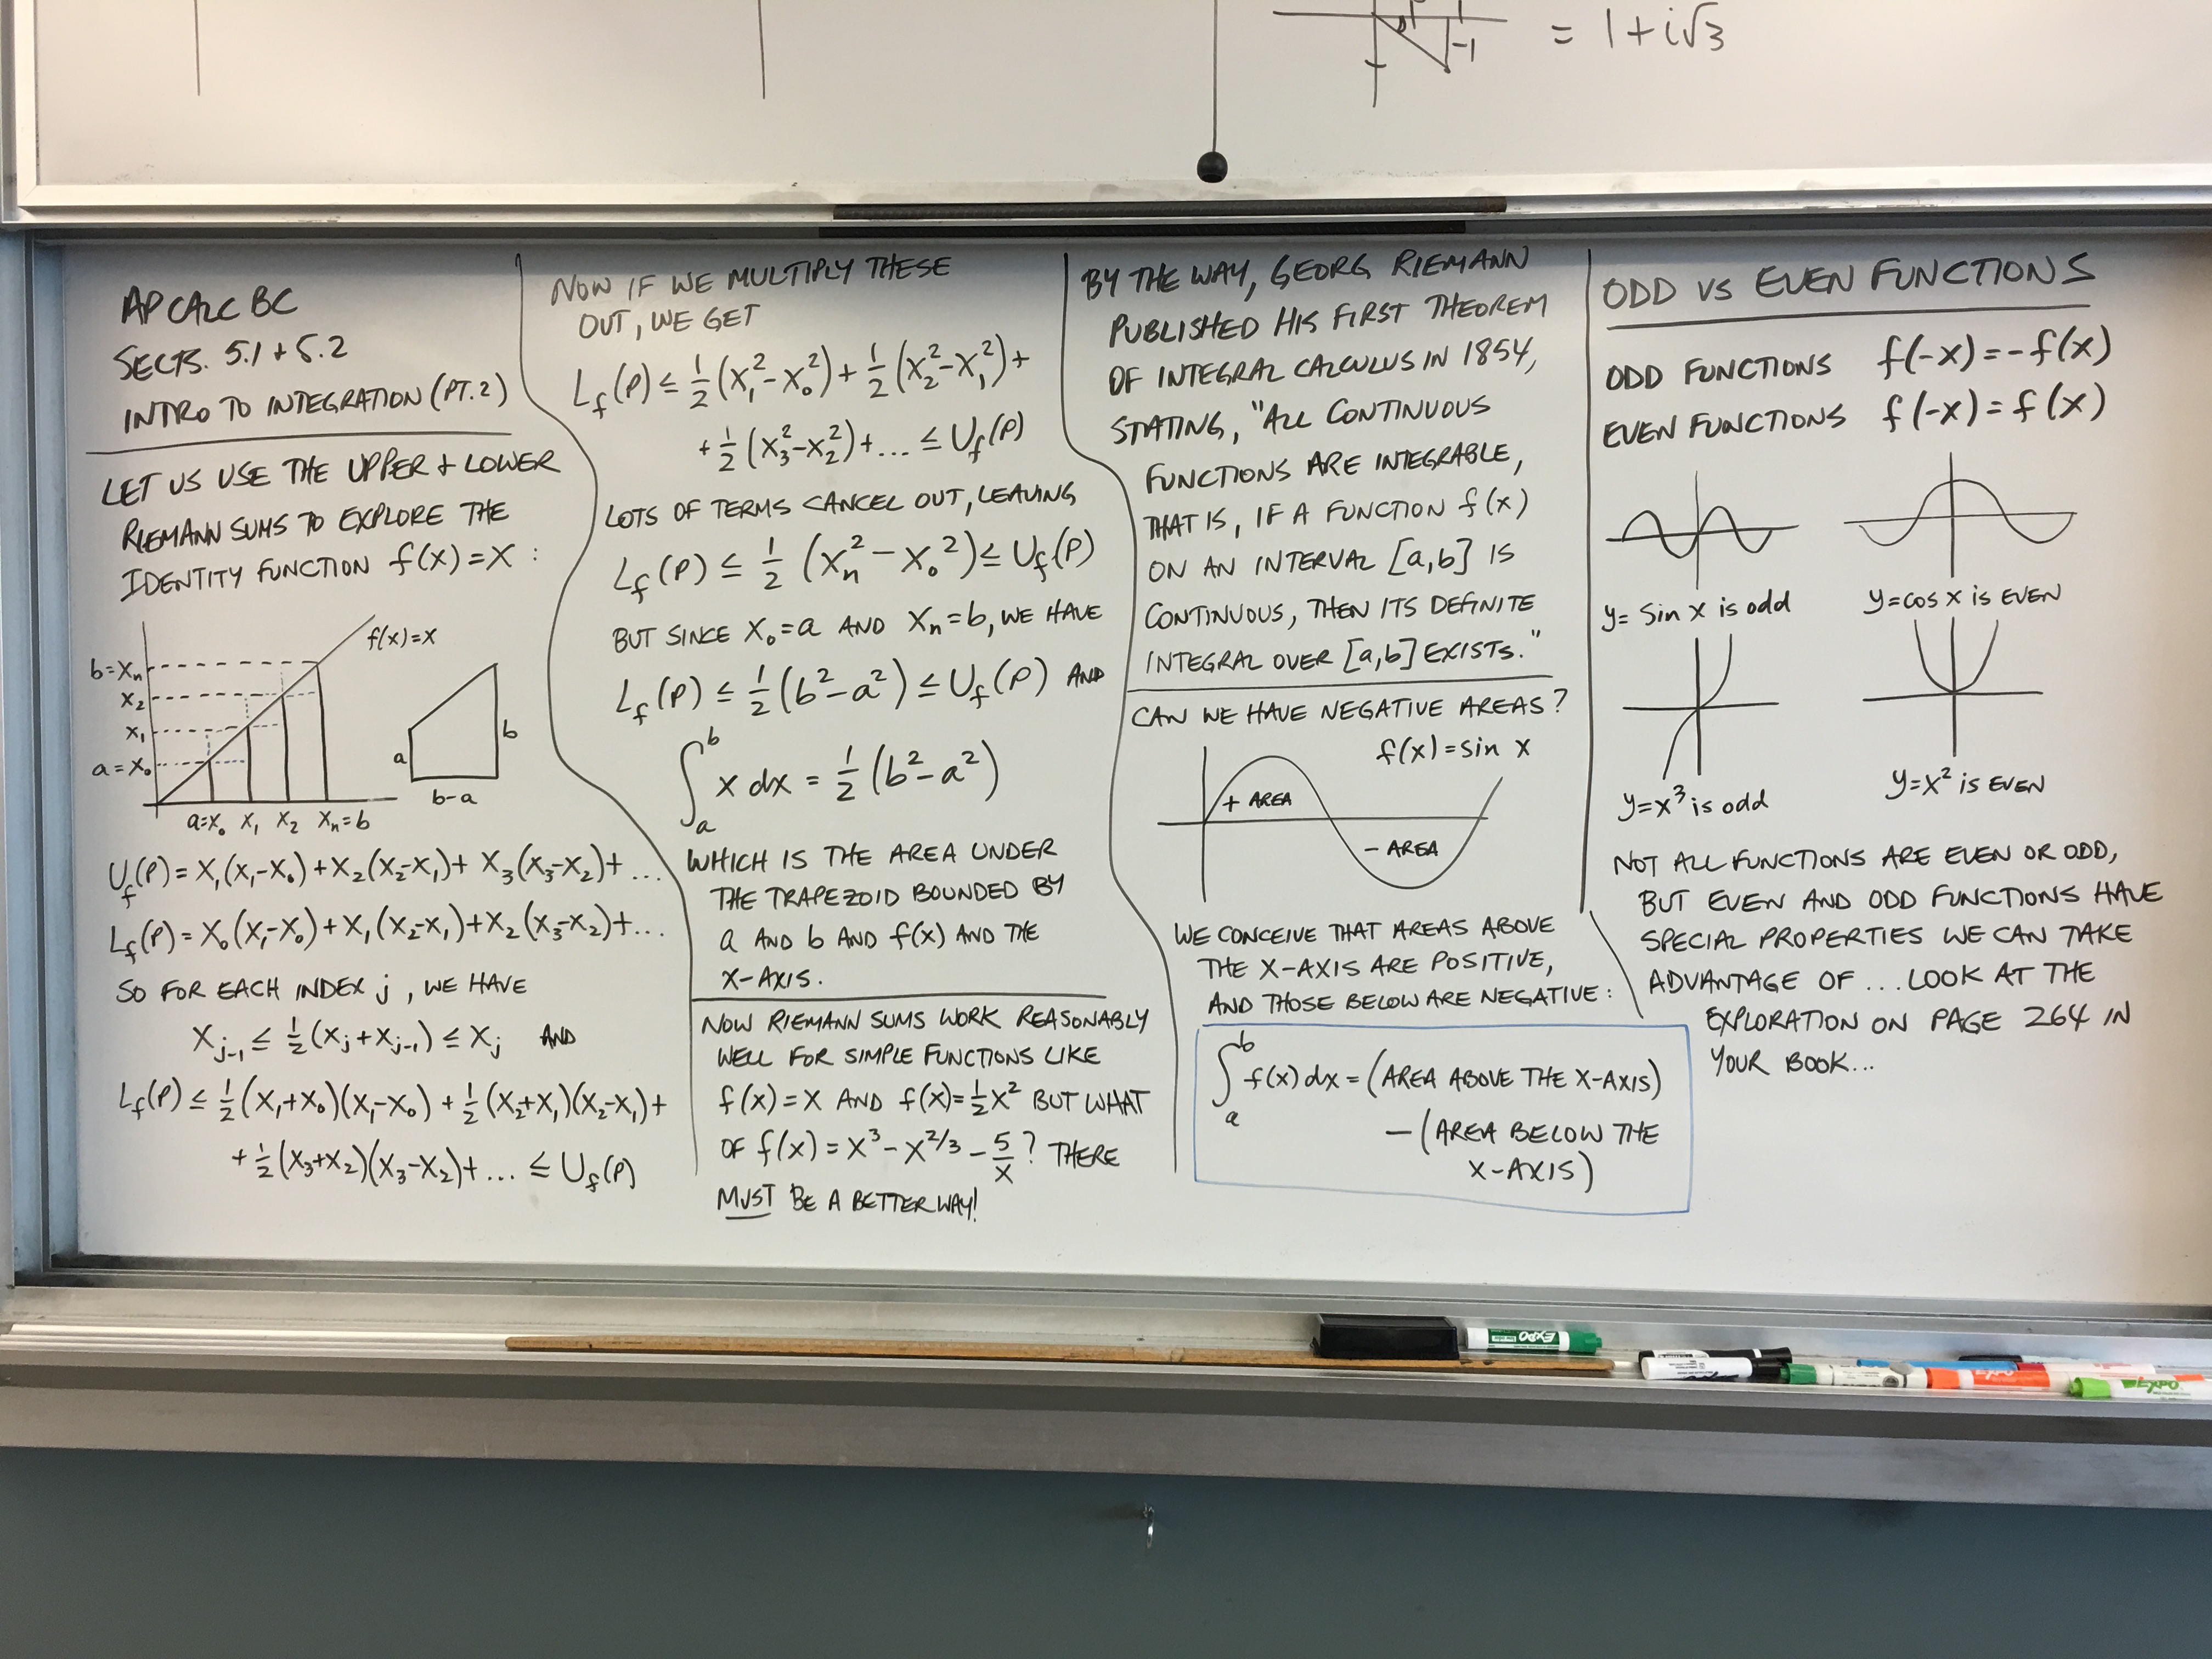 -1
= 1+i√3
AP CALC BC
SECTS. 5.1 + 5.2
INTRO TO INTEGRATION (PT. 2)
LET US USE THE UPPER + LOWER
RIEMANN SUMS TO EXPLORE THE
IDENTITY FUNCTION f(x)=X :
f(x)=x
b=Xn
X2
X1
a=X0
a=X0 X1 X2 Xn=b
a
b
b-a
Uf(P)=X1(X1-X0)+X2(X2-X1)+X3(X3-X2)+...
Lf(P)=X0(X1-X0)+X1(X2-X1)+X2(X3-X2)+...
SO FOR EACH INDEX j, WE HAVE
Xj-1 ≤ 1/2(Xj+Xj-1) ≤ Xj AND
Lf(P) ≤ 1/2(X1+X0)(X1-X0)+1/2(X2+X1)(X2-X1)+
+1/2(X3+X2)(X3-X2)+... ≤ Uf(P)
NOW IF WE MULTIPLY THESE
OUT, WE GET
Lf(P) ≤ 1/2(X1²-X0²)+1/2(X2²-X1²)+
+1/2(X3²-X2²)+... ≤ Uf(P)
LOTS OF TERMS CANCEL OUT, LEAVING
Lf(P) ≤ 1/2(Xn²-X0²) ≤ Uf(P)
BUT SINCE X0=a AND Xn=b, WE HAVE
Lf(P) ≤ 1/2(b²-a²) ≤ Uf(P) AND
∫ab x dx = 1/2(b²-a²)
WHICH IS THE AREA UNDER
THE TRAPEZOID BOUNDED BY
a AND b AND f(x) AND THE
X-AXIS.
NOW RIEMANN SUMS WORK REASONABLY
WELL FOR SIMPLE FUNCTIONS LIKE
f(x)=X AND f(x)=1/2X² BUT WHAT
OF f(x)=X³-X^2/3-5/X? THERE
MUST BE A BETTER WAY!
BY THE WAY, GEORG RIEMANN
PUBLISHED HIS FIRST THEOREM
OF INTEGRAL CALCULUS IN 1854,
STATING, "ALL CONTINUOUS
FUNCTIONS ARE INTEGRABLE,
THAT IS, IF A FUNCTION f(x)
ON AN INTERVAL [a,b] IS
CONTINUOUS, THEN ITS DEFINITE
INTEGRAL OVER [a,b] EXISTS."
CAN WE HAVE NEGATIVE AREAS?
f(x)=sin x
+ AREA
- AREA
WE CONCEIVE THAT AREAS ABOVE
THE X-AXIS ARE POSITIVE,
AND THOSE BELOW ARE NEGATIVE:
∫ab f(x)dx=(AREA ABOVE THE X-AXIS)
-(AREA BELOW THE
X-AXIS)
ODD VS EVEN FUNCTIONS
ODD FUNCTIONS f(-x)=-f(x)
EVEN FUNCTIONS f(-x)=f(x)
y=sin x is odd
y=cos x is EVEN
y=x³ is odd
y=x² is EVEN
NOT ALL FUNCTIONS ARE EVEN OR ODD,
BUT EVEN AND ODD FUNCTIONS HAVE
SPECIAL PROPERTIES WE CAN TAKE
ADVANTAGE OF ...LOOK AT THE
EXPLORATION ON PAGE 264 IN
YOUR BOOK...
EXPO
EXPO